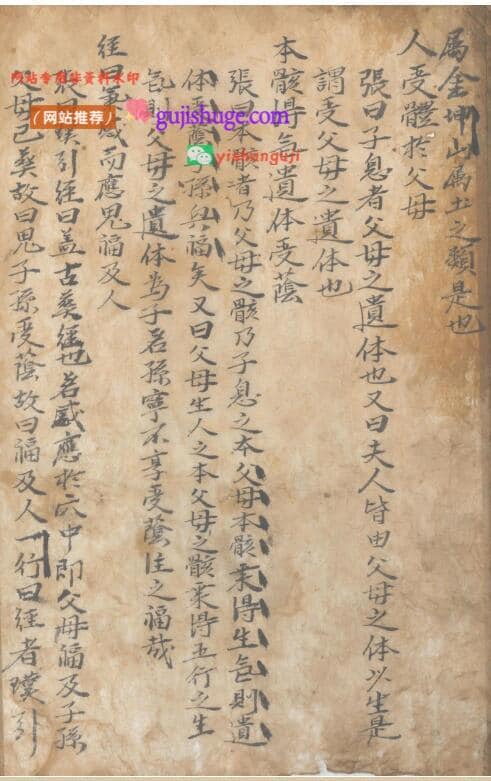 属金坤山属土之類是也
人受體於父母
張曰子息者父母之遺体也又曰夫人皆由父母之体以生是
謂受父母之遺体也
本骸得気遺体受蔭
張曰本骸者乃父母之骸乃子息之本父母本骸乘得生気則遺
体 子孫興福矣又曰父母生人之本父母之骸乘得五行之生
気則父母之遺体為子若孫寧不享受蔭注之福哉
経曰 感而應鬼福及人
曰璞引経曰盖古葬経也若感應於穴中即父母福及子孫
父母已葬故曰鬼子孫受蔭故曰福及人一行曰経者璞引
网站专用非资料水印
(网站推荐)
gujishuge.com
yishanguji